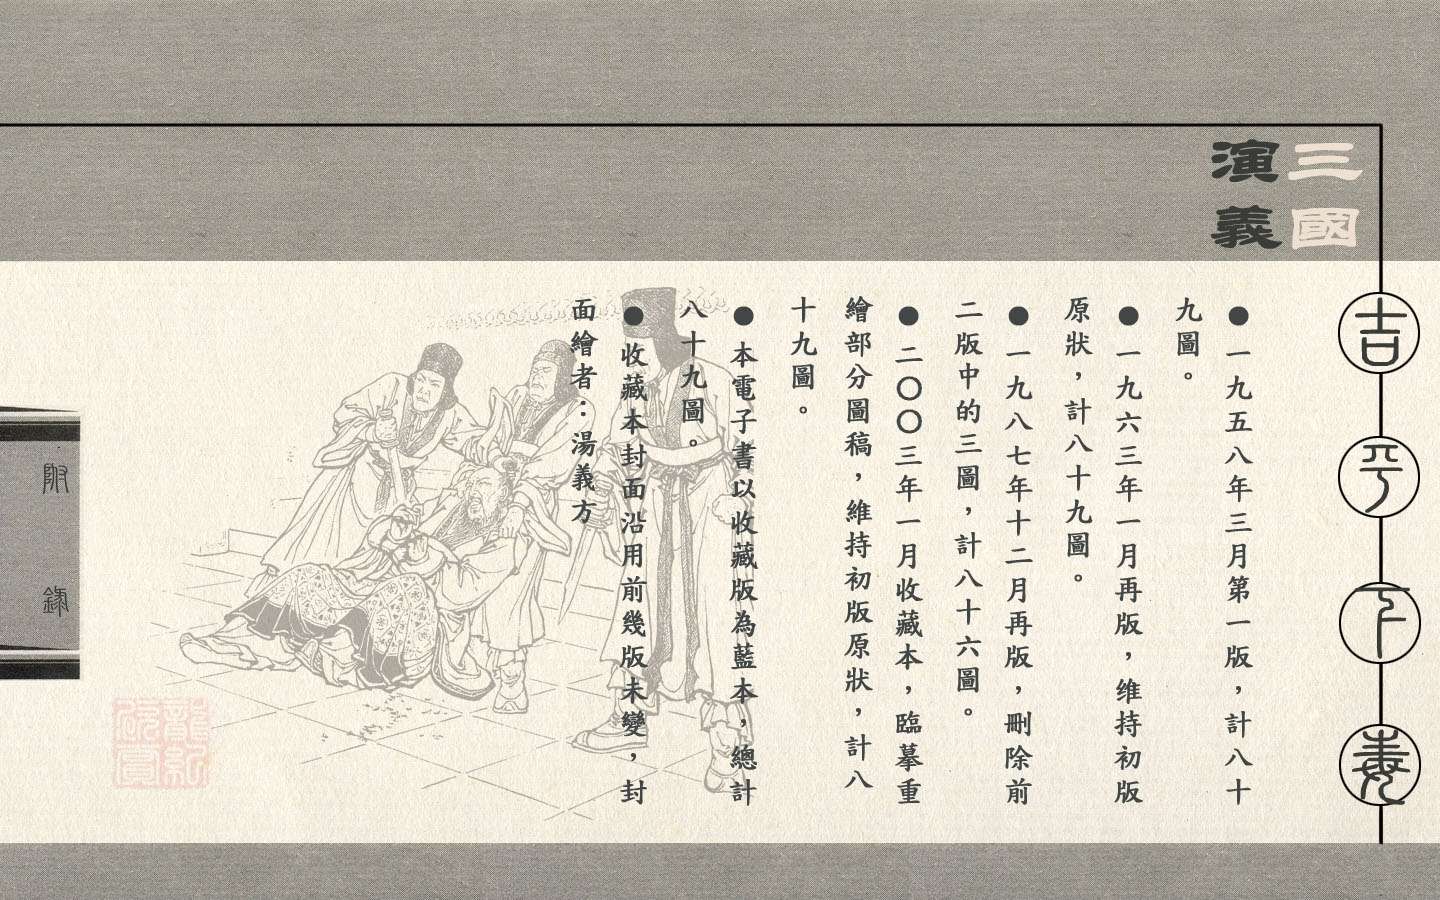 三國
演義
吉平下毒
●一九五八年三月第一版，計八十
九圖。
●一九六三年一月再版，維持初版
原狀，計八十九圖。
●一九八七年十二月再版，刪除前
二版中的三圖，計八十六圖。
●二〇〇三年一月收藏本，臨摹重
繪部分圖稿，維持初版原狀，計八
十九圖。
●本電子書以收藏版為藍本，總計
八十九圖。
●收藏本封面沿用前幾版未變，封
面繪者：湯義方
附錄